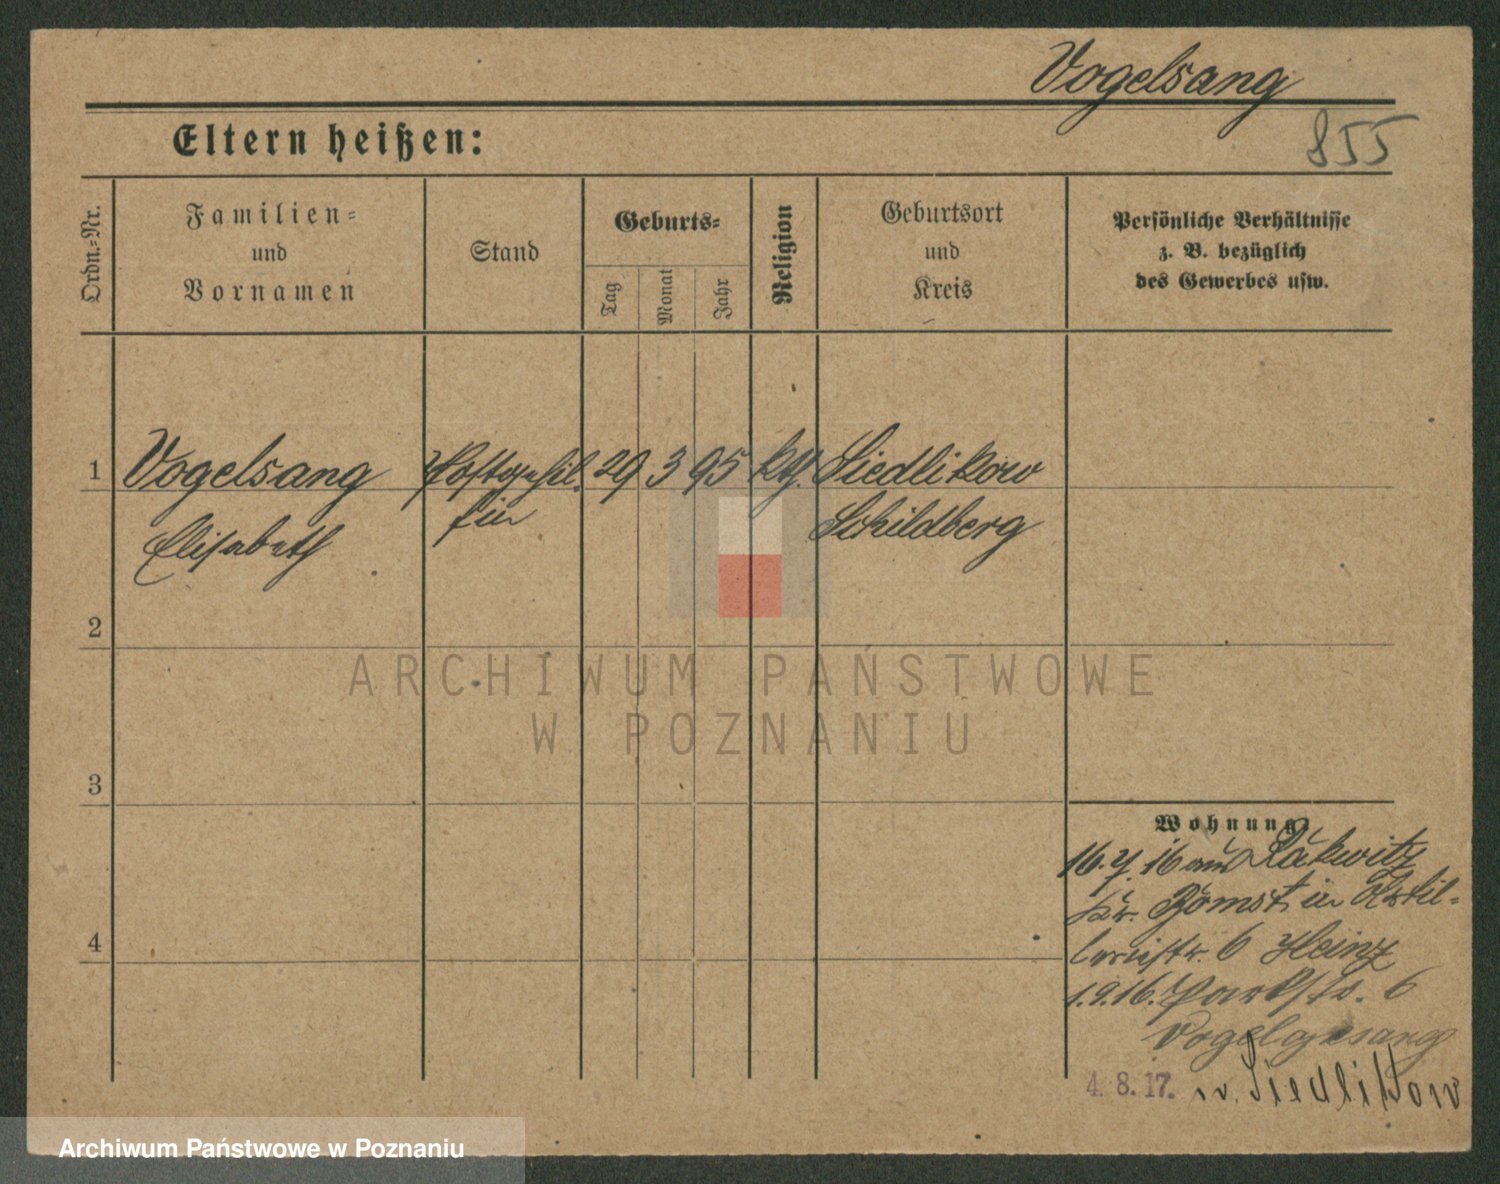 Vogelsang
855
Eltern heißen:
Ordn.-Nr.
Familien-
und
Vornamen
Stand
Geburts-
Tag
Monat
Jahr
Religion
Geburtsort
und
Kreis
Persönliche Verhältnisse
z. B. bezüglich
des Gewerbes usw.
1 Vogelsang Postgehil. 29 3 95 kth. Siedlikow
Elisabeth fin Schildberg
2
3
4
ARCHIWUM PAŃSTWOWE
W POZNANIU
Wohnung
16. 7. 16 aus Rakwitz
Kr. Bomst in Artil-
leriestr. 6 Heinz
1.9.16. Parkstr. 6
Vogelgesang
4. 8. 17. n. Siedlikow
Archiwum Państwowe w Poznaniu